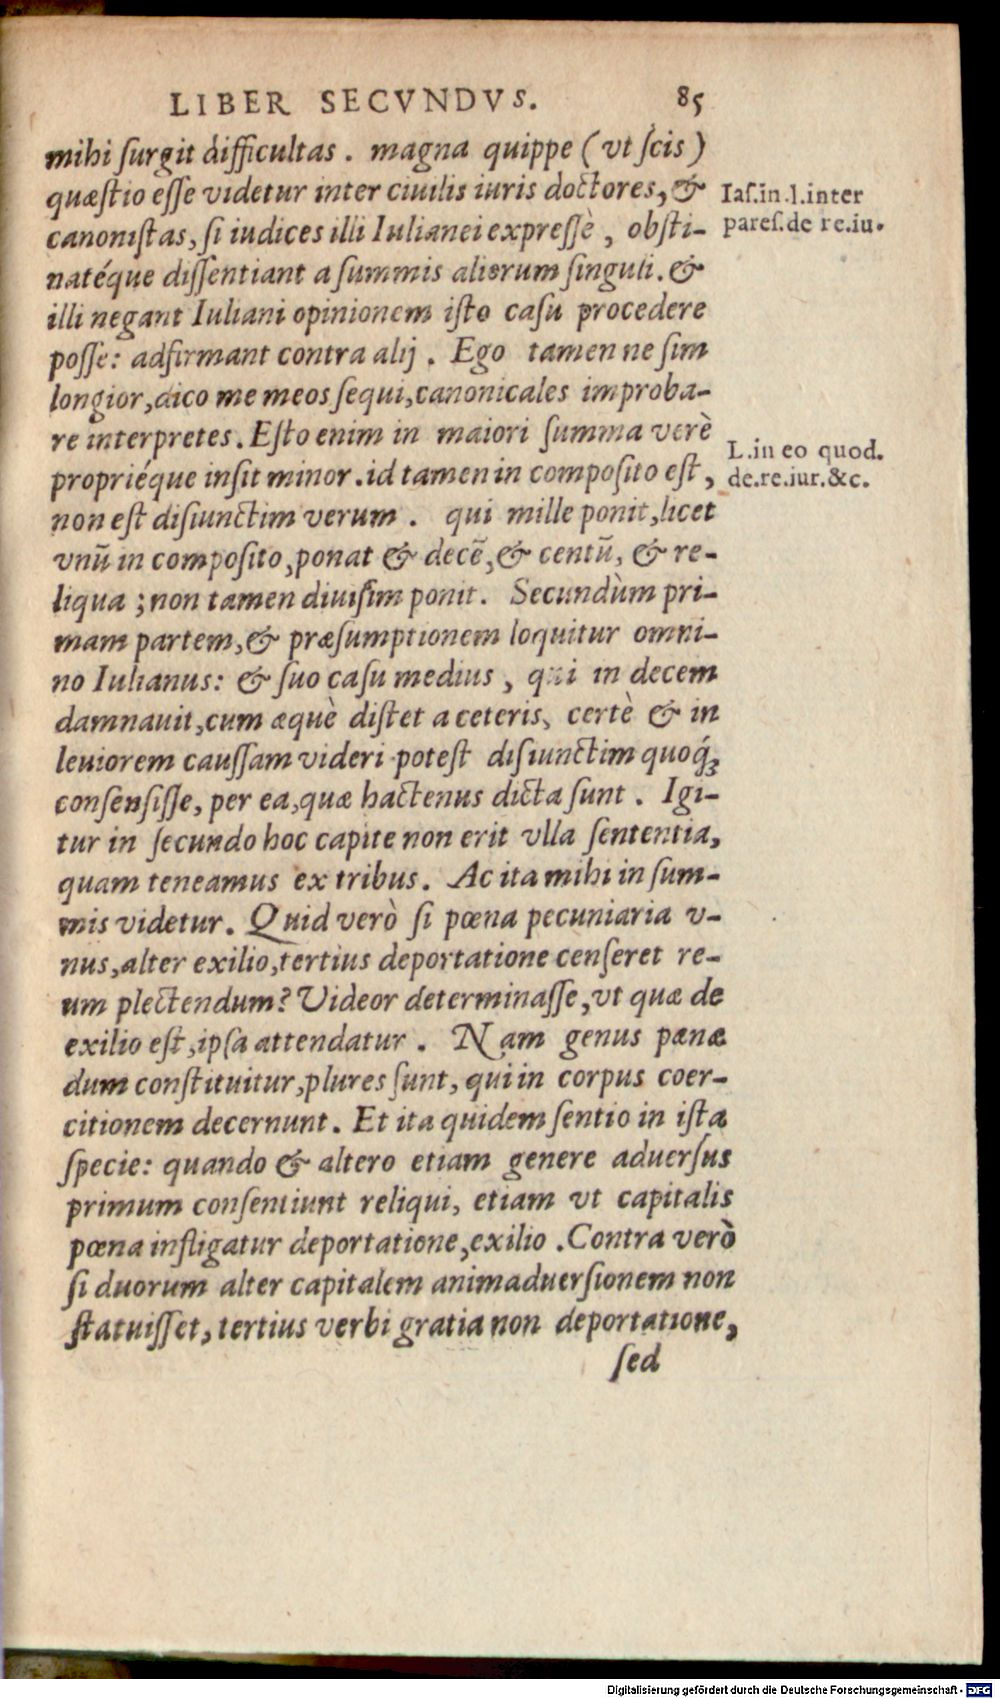 LIBER SECVNDVS. 85
mihi ſurgit difficultas. magna quippe (vt ſcis)
quæſtio eſſe videtur inter ciuilis iuris doctores, &
Iaſ.in.l.inter
canonistas, ſi iudices illi Iulianei expreſſè, obſti-
pareſ.de re.iu.
natéque diſſentiant a ſummis aliorum ſinguli. &
illi negant Iuliani opinionem iſto caſu procedere
poſſe: adfirmant contra alij. Ego tamen ne ſim
longior, dico me meos ſequi, canonicales improba-
re interpretes. Eſto enim in maiori ſumma verè
L.in eo quod.
propriéque inſit minor. id tamen in compoſito eſt,
de.re.iur.&c.
non eſt diſiunctim verum. qui mille ponit, licet
vnū in compoſito, ponat & decē, & centū, & re-
liqua; non tamen diuiſim ponit. Secundùm pri-
mam partem, & præſumptionem loquitur omni-
no Iulianus: & ſuo caſu medius, qui in decem
damnauit, cum æquè diſtet a ceteris, certè & in
leuiorem cauſſam videri poteſt diſiunctim quoq́ꝫ
conſenſiſſe, per ea, quæ hactenus dicta ſunt. Igi-
tur in ſecundo hoc capite non erit vlla ſententia,
quam teneamus ex tribus. Ac ita mihi in ſum-
mis videtur. Quid verò ſi pœna pecuniaria v-
nus, alter exilio, tertius deportatione cenſeret re-
um plectendum? Videor determinaſſe, vt quæ de
exilio eſt, ipſa attendatur. Nam genus pænæ
dum conſtituitur, plures ſunt, qui in corpus coer-
citionem decernunt. Et ita quidem ſentio in iſta
ſpecie: quando & altero etiam genere aduerſus
primum conſentiunt reliqui, etiam vt capitalis
pœna infligatur deportatione, exilio. Contra verò
ſi duorum alter capitalem animaduerſionem non
ſtatuiſſet, tertius verbi gratia non deportatione,
ſed
Digitalisierung gefördert durch die Deutsche Forschungsgemeinschaft - DFG